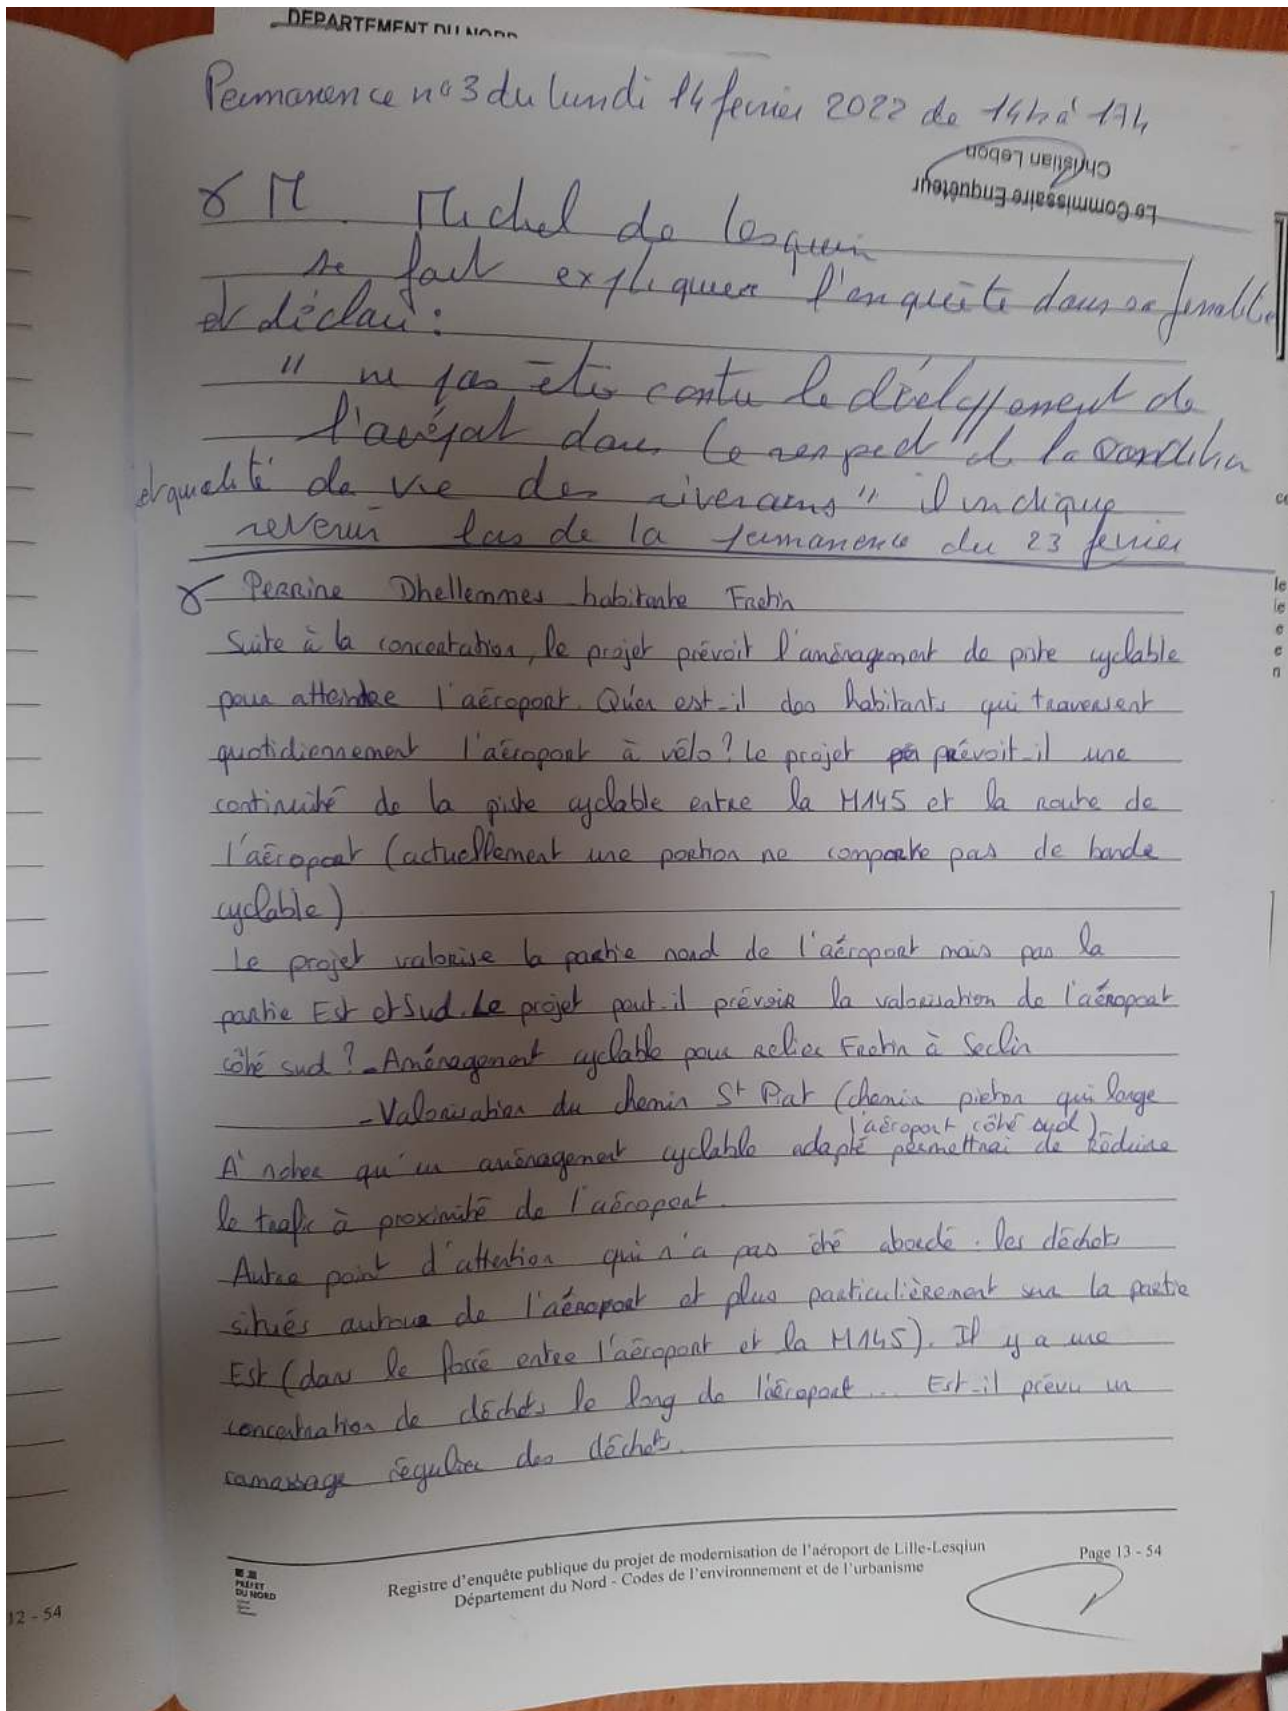 DEPARTEMENT DU NORD
Permanence n° 3 du lundi 14 fevrier 2022 de 14h à 17h
Christian Lebon
Le Commissaire Enquêteur
M. Michel de Lesquin
se fait expliquer l'enquête dans sa finalité
et déclare :
" ne pas être contre le développement de
l'aéroport dans le respect " de la condition
et qualité de vie des riverains " il indique
revenir lors de la permanence du 23 fevrier
Perrine Dhellemmes habitante Fretin
Suite à la concertation, le projet prévoit l'aménagement de piste cyclable
pour atteindre l'aéroport. Qu'en est-il des habitants qui traversent
quotidiennement l'aéroport à vélo ? Le projet prévoit-il une
continuité de la piste cyclable entre la M145 et la route de
l'aéroport (actuellement une portion ne comporte pas de bande
cyclable)
Le projet valorise la partie nord de l'aéroport mais pas la
partie Est et Sud. Le projet peut-il prévoir la valorisation de l'aéroport
côté sud ? - Aménagement cyclable pour relier Fretin à Seclin
- Valorisation du chemin St Piat (chemin pieton qui longe
l'aéroport côté sud)
A noter qu'un aménagement cyclable adapté permettrai de réduire
le trafic à proximité de l'aéroport.
Autre point d'attention qui n'a pas été abordé. les déchets
situés autour de l'aéroport et plus particulièrement sur la partie
Est (dans le fossé entre l'aéroport et la M145). Il y a une
concentration de déchets le long de l'aéroport... Est-il prévu un
ramassage régulier des déchets.
PRÉFET
DU NORD
Registre d'enquête publique du projet de modernisation de l'aéroport de Lille-Lesqiun
Département du Nord - Codes de l'environnement et de l'urbanisme
Page 13 - 54
12 - 54